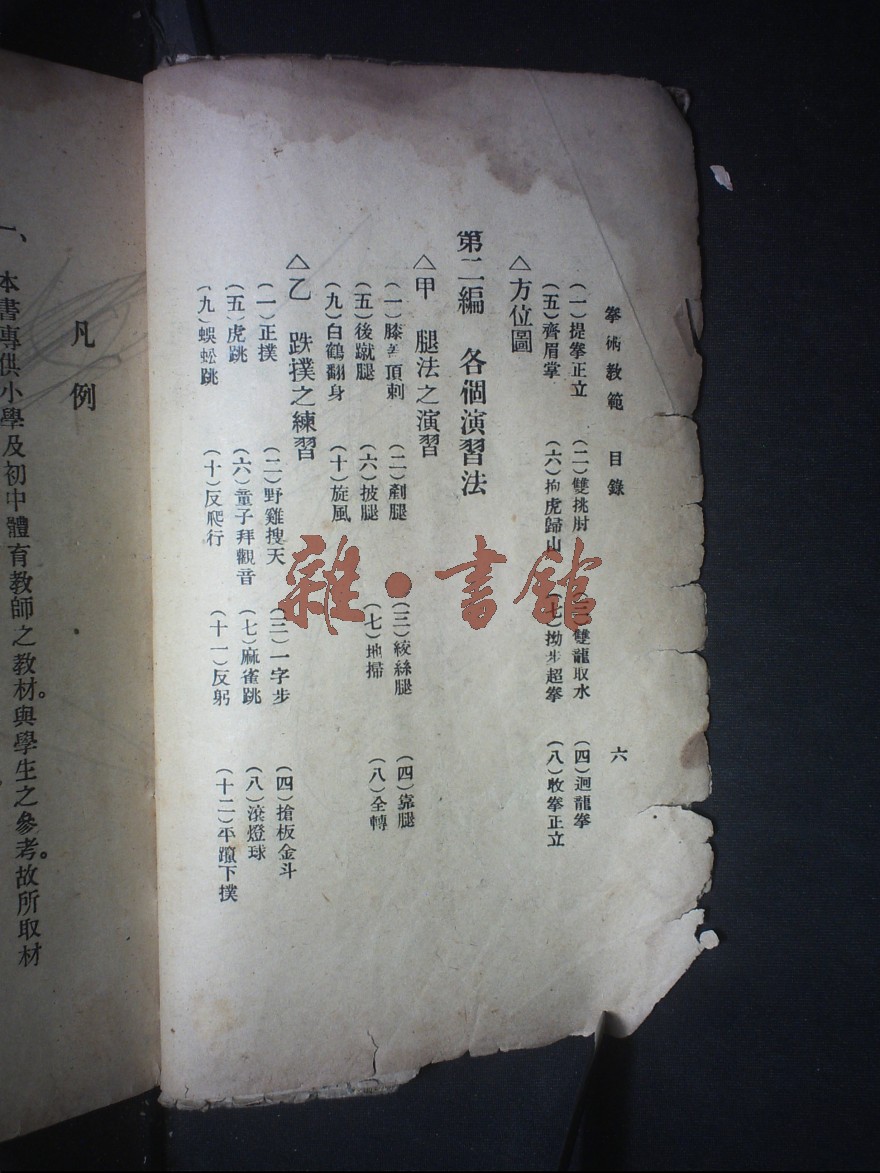 拳術教範 目錄 六
(一)提拳正立 (二)雙挑肘 雙龍取水 (四)迴龍拳
(五)齊眉掌 (六)拘虎歸山 (七)拗步超拳 (八)收拳正立
△方位圖
第二編 各個演習法
△甲 腿法之演習
(一)膝 頂刺 (二)剷腿 (三)絞絲腿 (四)靠腿
(五)後蹴腿 (六)披腿 (七)地掃 (八)全轉
(九)白鶴翻身 (十)旋風
△乙 跌撲之練習
(一)正撲 (二)野雞搜天 (三)一字步 (四)搶板金斗
(五)虎跳 (六)童子拜觀音 (七)麻雀跳 (八)滾燈球
(九)蜈蚣跳 (十)反爬行 (十一)反躬 (十二)平躓下撲
凡例
一、本書專供小學及初中體育教師之教材。與學生之參考。故所取材
雜·書館